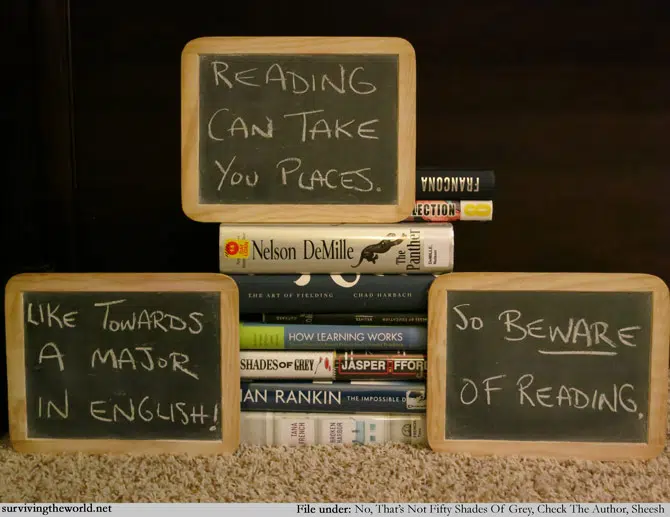 READING
CAN TAKE
YOU PLACES.
FRANCONA
LECTION 8
Nelson DeMille
The
Panther
DEMILLE
THE ART OF FIELDING CHAD HARBACH
HOW LEARNING WORKS
SHADES OF GREY/ JASPER FFOR
IAN RANKIN THE IMPOSSIBLE D
TANA
FRENCH
BROKEN
HARBOR
LIKE TOWARDS
A MAJOR
IN ENGLISH!
SO BEWARE
OF READING.
survivingtheworld.net
File under: No, That's Not Fifty Shades Of Grey, Check The Author, Sheesh